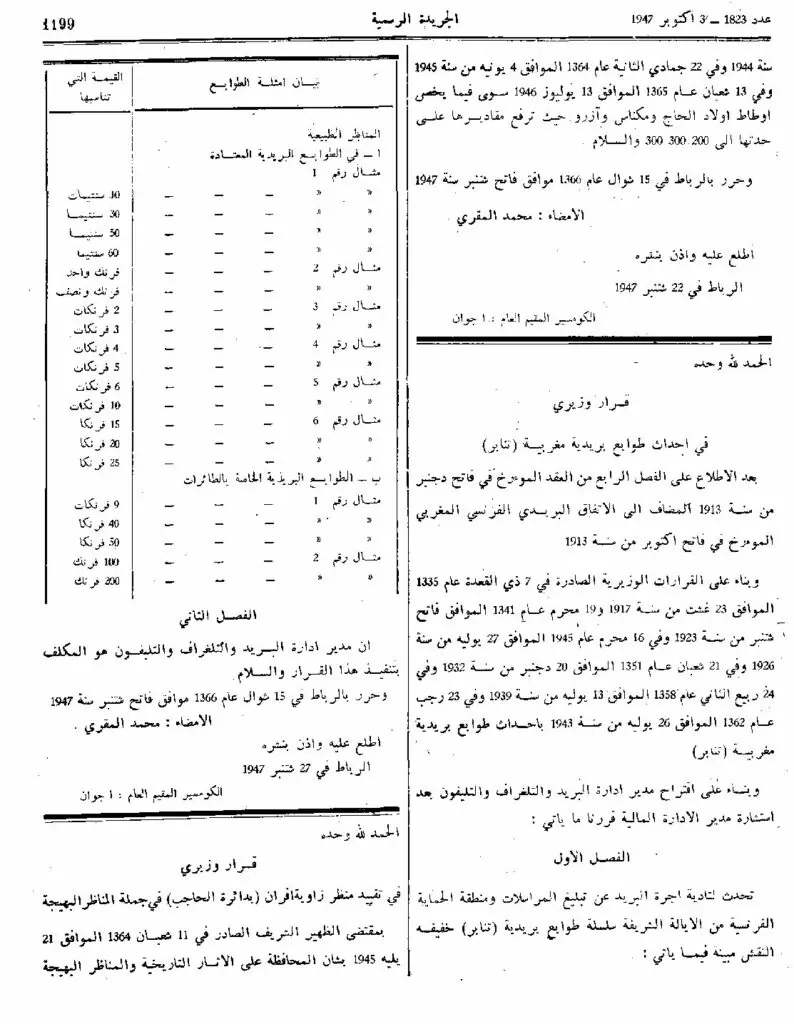 عدد 1823 ـ 3 اكتوبر 1947
الجريدة الرسمية
1199
سنة 1944 وفي 22 جمادي الثانية عام 1364 الموافق 4 يونيه من سنة 1945
وفي 13 شعبان عام 1365 الموافق 13 يوليوز 1946 سوى فيما يخص
اوطاط اولاد الحاج ومكناس وآزرو حيث ترفع مقاديرها على
حدتها الى 200 300 300 والسلام
وحرر بالرباط في 15 شوال عام 1366 موافق فاتح شتنبر سنة 1947
الامضاء : محمد المقري .
اطلع عليه واذن بنشره
الرباط في 22 شتنبر 1947
الكومسير المقيم العام : ا جوان
الحمد لله وحده
قرار وزيري
في احداث طوابع بريدية مغربية (تنابر)
بعد الاطلاع على الفصل الرابع من العقد الموءرخ في فاتح دجنبر
من سنة 1913 المضاف الى الاتفاق البريدي الفرنسي المغربي
الموءرخ في فاتح اكتوبر من سنة 1913
وبناء على القرارات الوزيرية الصادرة في 7 ذي القعدة عام 1335
الموافق 23 غشت من سنة 1917 و19 محرم عام 1341 الموافق فاتح
شتنبر من سنة 1923 وفي 16 محرم عام 1945 الموافق 27 يوليه من سنة
1926 وفي 21 شعبان عام 1351 الموافق 20 دجنبر من سنة 1932 وفي
24 ربيع الثاني عام 1358 الموافق 13 يوليه من سنة 1939 وفي 23 رجب
عام 1362 الموافق 26 يوليه من سنة 1943 باحداث طوابع بريدية
مغربية (تنابر)
وبناء على اقتراح مدير ادارة البريد والتلغراف والتليفون بعد
استشارة مدير الادارة المالية قررنا ما ياتي :
الفصل الاول
تحدث لتادية اجرة البريد عن تبليغ المراسلات ومنطقة الحماية
الفرنسية من الايالة الشريفة سلسلة طوابع بريدية (تنابر) خفيفة
النقش مبينة فيما ياتي :
بيان امثلة الطوابع
القيمة التي تناسبها
المناظر الطبيعية
ا ـ في الطوابع البريدية المعتادة
مثال رقم 1
» » — — — 10 سنتيمات
» » — — — 30 سنتيما
» » — — — 50 سنتيما
» » — — — 60 سنتيما
مثال رقم 2 — — — فرنك واحد
» » — — — فرنك ونصف
مثال رقم 3 — — — 2 فرنكات
» » — — — 3 فرنكات
مثال رقم 4 — — — 4 فرنكات
» » — — — 5 فرنكات
مثال رقم 5 — — — 6 فرنكات
» » — — — 10 فرنكات
مثال رقم 6 — — — 15 فرنكا
» » — — — 20 فرنكا
» » — — — 25 فرنكا
ب ـ الطوابع البريدية الخاصة بالطائرات
مثال رقم 1 — — — 9 فرنكات
» » — — — 40 فرنكا
» » — — — 50 فرنكا
مثال رقم 2 — — — 100 فرنك
» » — — — 200 فرنك
الفصل الثاني
ان مدير ادارة البريد والتلغراف والتليفون هو المكلف
بتنفيذ هذا القرار والسلام
وحرر بالرباط في 15 شوال عام 1366 موافق فاتح شتنبر سنة 1947
الامضاء : محمد المقري .
اطلع عليه واذن بنشره
الرباط في 27 شتنبر 1947
الكومسير المقيم العام : ا جوان
الحمد لله وحده
قرار وزيري
في تقييد منظر زاوية افران (بدائرة الحاجب) في جملة المناظر البهيجة
بمقتضى الظهير الشريف الصادر في 11 شعبان 1364 الموافق 21
يليه 1945 بشان المحافظة على الاثار التاريخية والمناظر البهيجة